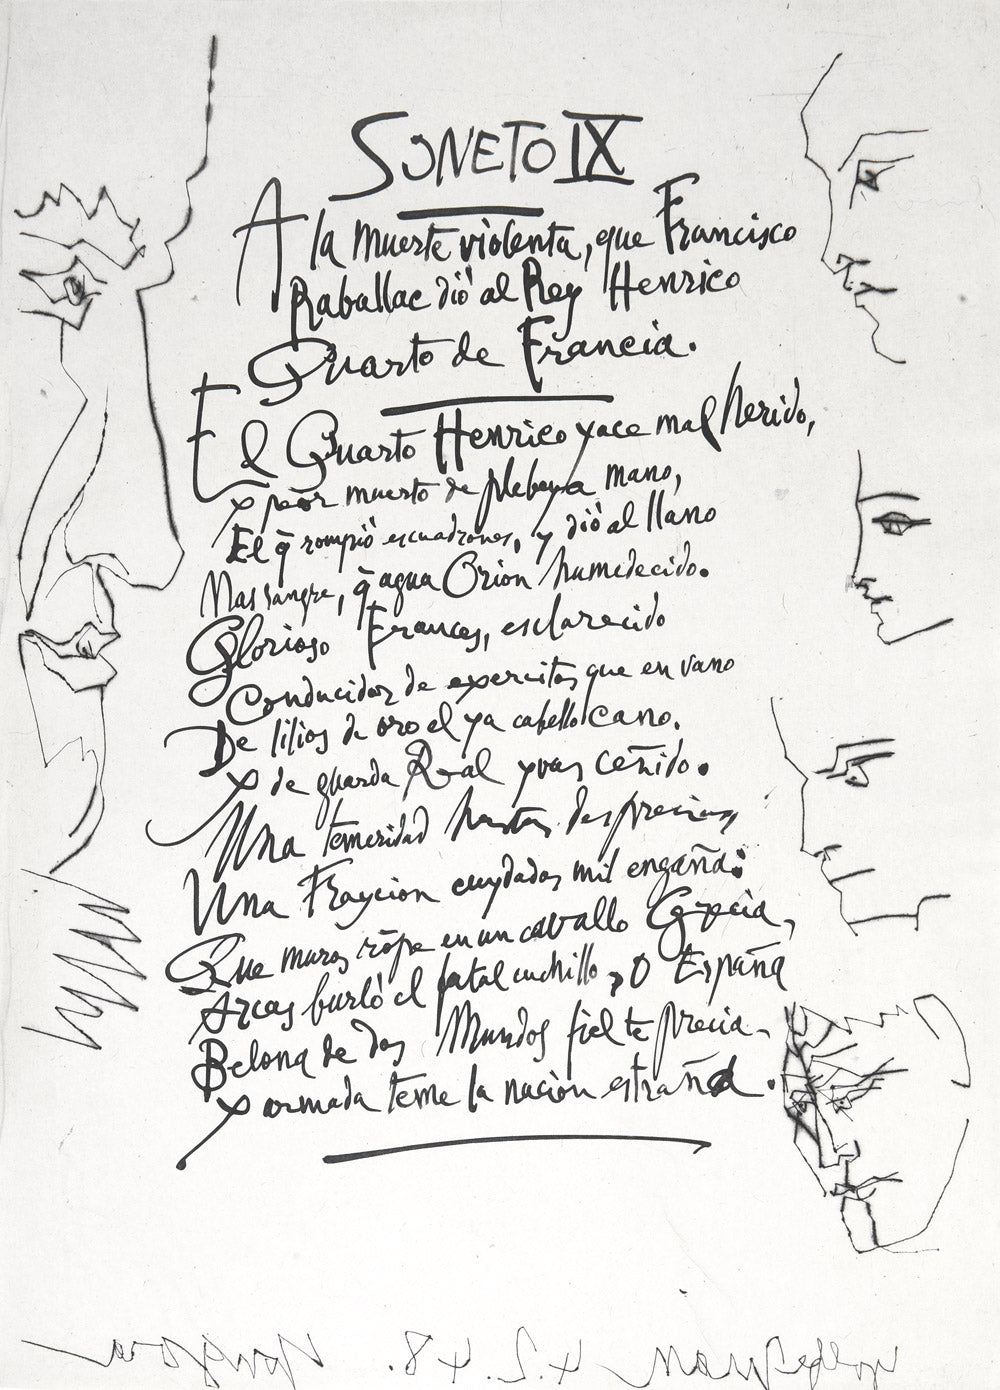 SONETO IX
A la muerte violenta, que Francisco
Raballac diò al Rey Henrico
Quarto de Francia.
El Quarto Henrico yace mal herido,
y peor muerto de plebeya mano,
El q̃ rompiò escuadrones, y diò al llano
Mas sangre, q̃ agua Orion humedecido.
Glorioso Frances, esclarecido
Conducidor de exercitos que en vano
De lilios de oro el ya cabello cano.
y de guarda Real yvas ceñido.
Una temeridad hastas desprecia,
Una Traycion cuydados mil engaña:
Que muros rõpe en un cavallo Grecia,
Arcas burlò el fatal cuchillo, O España
Belona de dos Mundos fiel te precia
y armada teme la nacion estraña.
4.2.48. Gongora